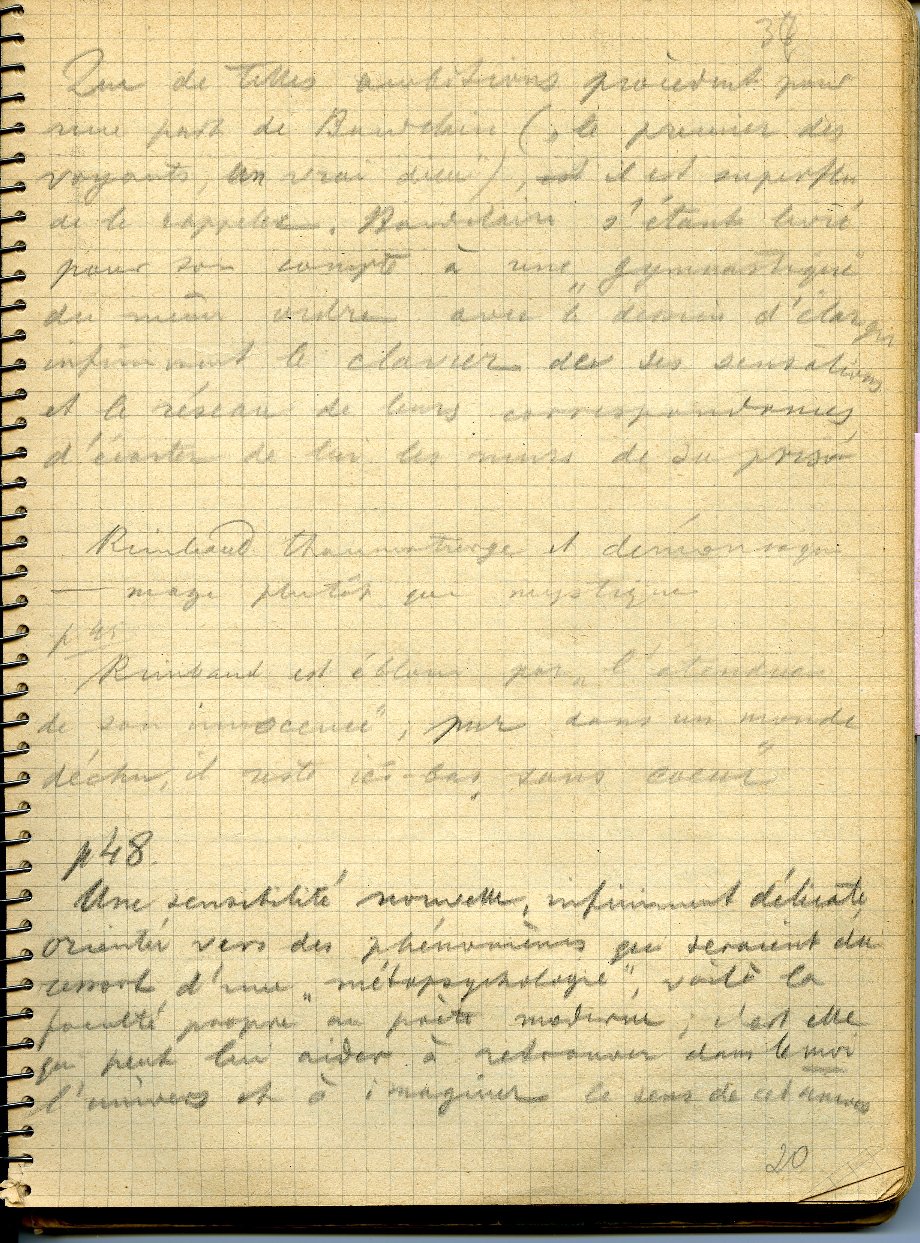 Que de telles ambitions procèdent pour
une part de Baudelaire („le premier des
voyants, un vrai dieu"), il est superflu
de le rappeler. Baudelaire s'étant livré
pour son compte à une „gymnastique"
du même ordre avec le dessein d'élargir
infiniment le clavier de ses sensations
et le réseau de leurs correspondances
d'écarter de lui les murs de sa prison
Rimbaud thaumaturge et démoniaque
— mage plutôt que mystique
p 45
Rimbaud est ébloui par „l'étendue
de son innocence"; pur dans un monde
déchu, il reste ici-bas „sans coeur"
p 48.
Une sensibilité nouvelle, infiniment délicate,
orientée vers des phénomènes qui seraient du
ressort d'une „métapsychologie", voilà la
faculté propre au poète moderne; c'est elle
qui peut lui aider à retrouver dans le moi
l'univers et à imaginer le sens de cet univers
20